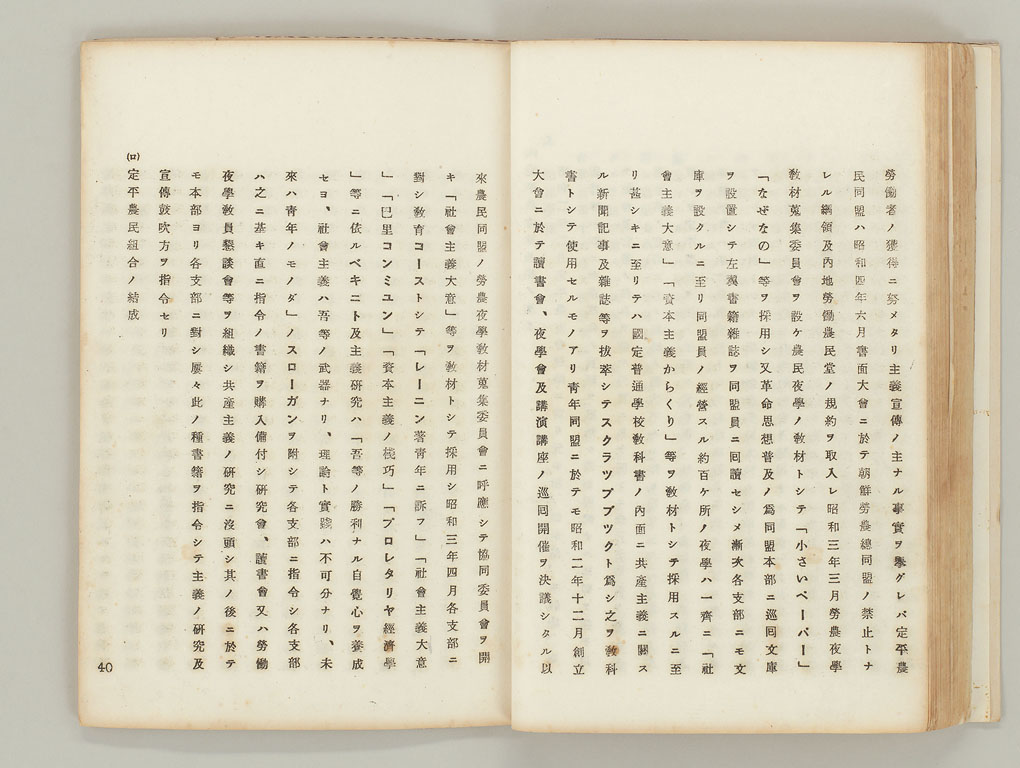 勞働者ノ獲得ニ努メタリ主義宣傳ノ主ナル事實ヲ擧グレバ定平農
民同盟ハ昭和四年六月書面大會ニ於テ朝鮮勞農總同盟ノ禁止トナ
レル綱領及內地勞働農民堂ノ規約ヲ取入レ昭和三年三月勞農夜學
敎材蒐集委員會ヲ設ケ農民夜學ノ敎材トシテ「小さいペーパー」
「なぜなの」等ヲ採用シ又革命思想普及ノ爲同盟本部ニ巡回文庫
ヲ設置シテ左翼書籍雜誌ヲ同盟員ニ回讀セシメ漸次各支部ニモ文
庫ヲ設クルニ至リ同盟員ノ經營スル約百ケ所ノ夜學ハ一齊ニ「社
會主義大意」「資本主義からくり」等ヲ敎材トシテ採用スルニ至
リ甚シキニ至リテハ國定普通學校敎科書ノ內面ニ共產主義ニ關ス
ル新聞記事及雜誌等ヲ拔萃シテスクラツプブツクト爲シ之ヲ敎科
書トシテ使用セルモノアリ靑年同盟ニ於テモ昭和二年十二月創立
大會ニ於テ讀書會、夜學會及講演講座ノ巡回開催ヲ決議シタル以
來農民同盟ノ勞農夜學敎材蒐集委員會ニ呼應シテ協同委員會ヲ開
キ「社會主義大意」等ヲ敎材トシテ採用シ昭和三年四月各支部ニ
對シ敎育コーストシテ「レーニン著靑年ニ訴フ」「社會主義大意
」「巴里コンミユン」「資本主義ノ技巧」「プロレタリヤ經濟學
」等ニ依ルベキニト及主義硏究ハ「吾等ノ勝利ナル自覺心ヲ養成
セヨ、社會主義ハ吾等ノ武器ナリ、理論ト實踐ハ不可分ナリ、未
來ハ靑年ノモノダ」ノスローガンヲ附シテ各支部ニ指令シ各支部
ハ之ニ基キ直ニ指令ノ書籍ヲ購入備付シ硏究會、讀書會又ハ勞働
夜學敎員懇談會等ヲ組織シ共產主義ノ硏究ニ沒頭シ其ノ後ニ於テ
モ本部ヨリ各支部ニ對シ屢々此ノ種書籍ヲ指令シテ主義ノ硏究及
宣傳鼓吹方ヲ指令セリ
(ロ)定平農民組合ノ結成
40